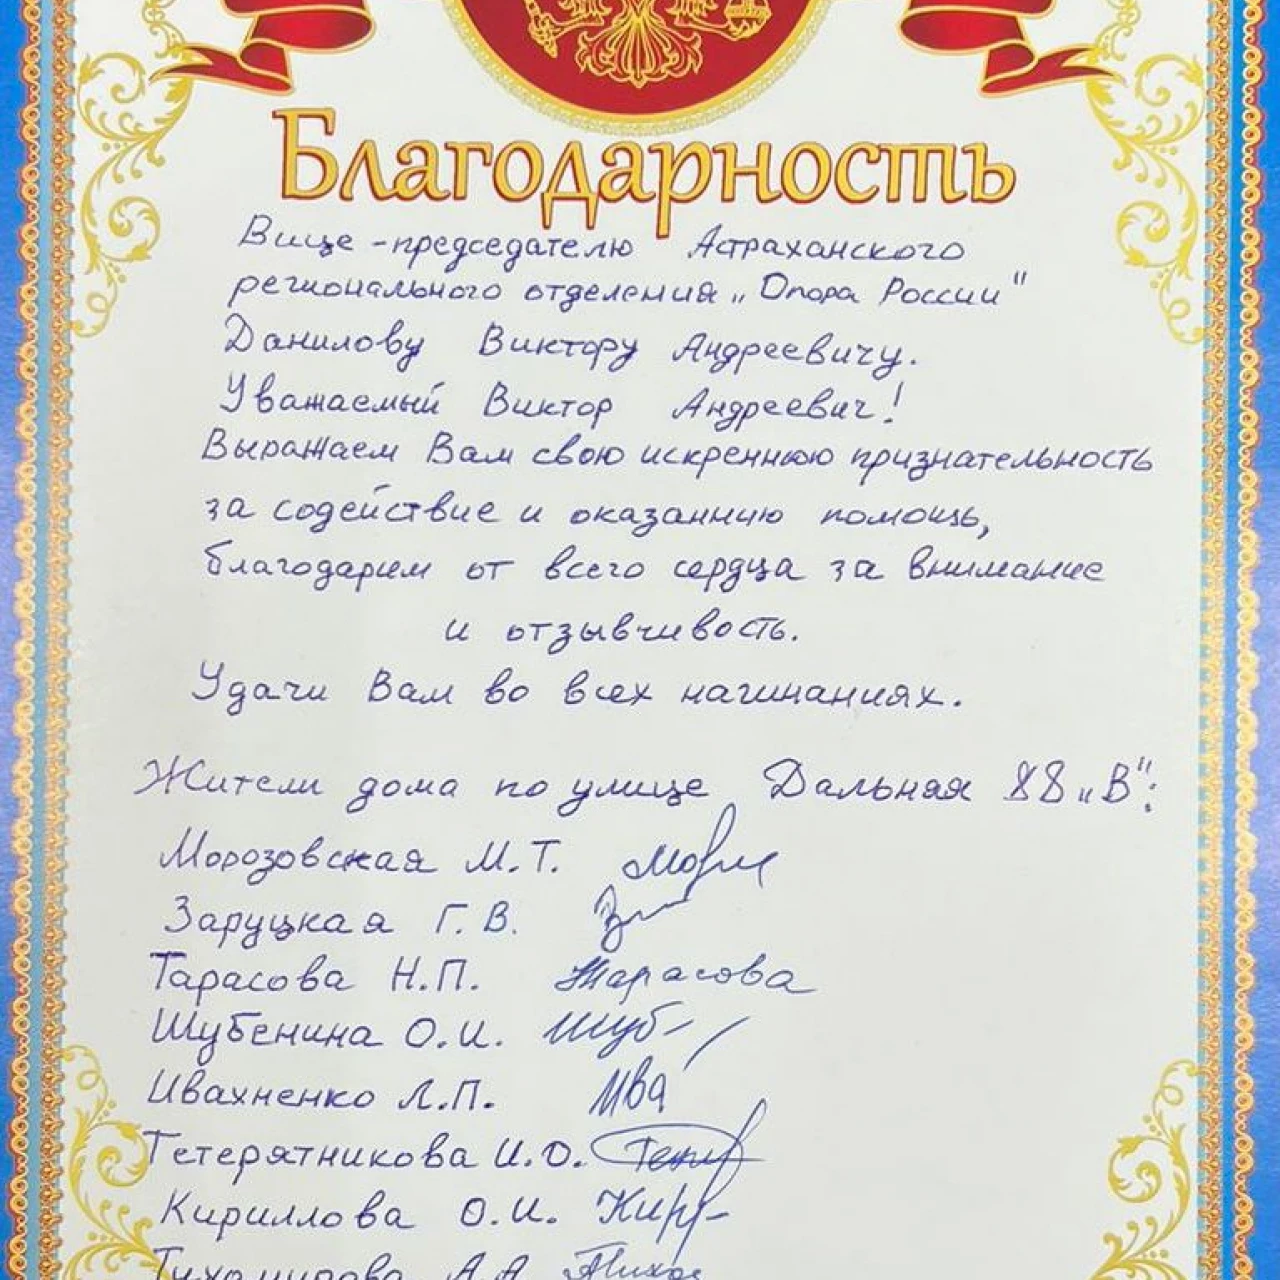 Благодарность
Вице-председателю Астраханского
регионального отделения „Опора России"
Данилову Виктору Андреевичу.
Уважаемый Виктор Андреевич!
Выражаем Вам свою искреннюю признательность
за содействие и оказанную помощь,
благодарим от всего сердца за внимание
и отзывчивость.
Удачи Вам во всех начинаниях.
Жители дома по улице Дальная 88 „В":
Морозовская М.Т.
Заруцкая Г.В.
Тарасова Н.П. Тарасова
Шубенина О.И. Шуб
Ивахненко Л.П. Ива
Тетерятникова И.О.
Кириллова О.И. Кир
Тихомирова А.А. Тихо